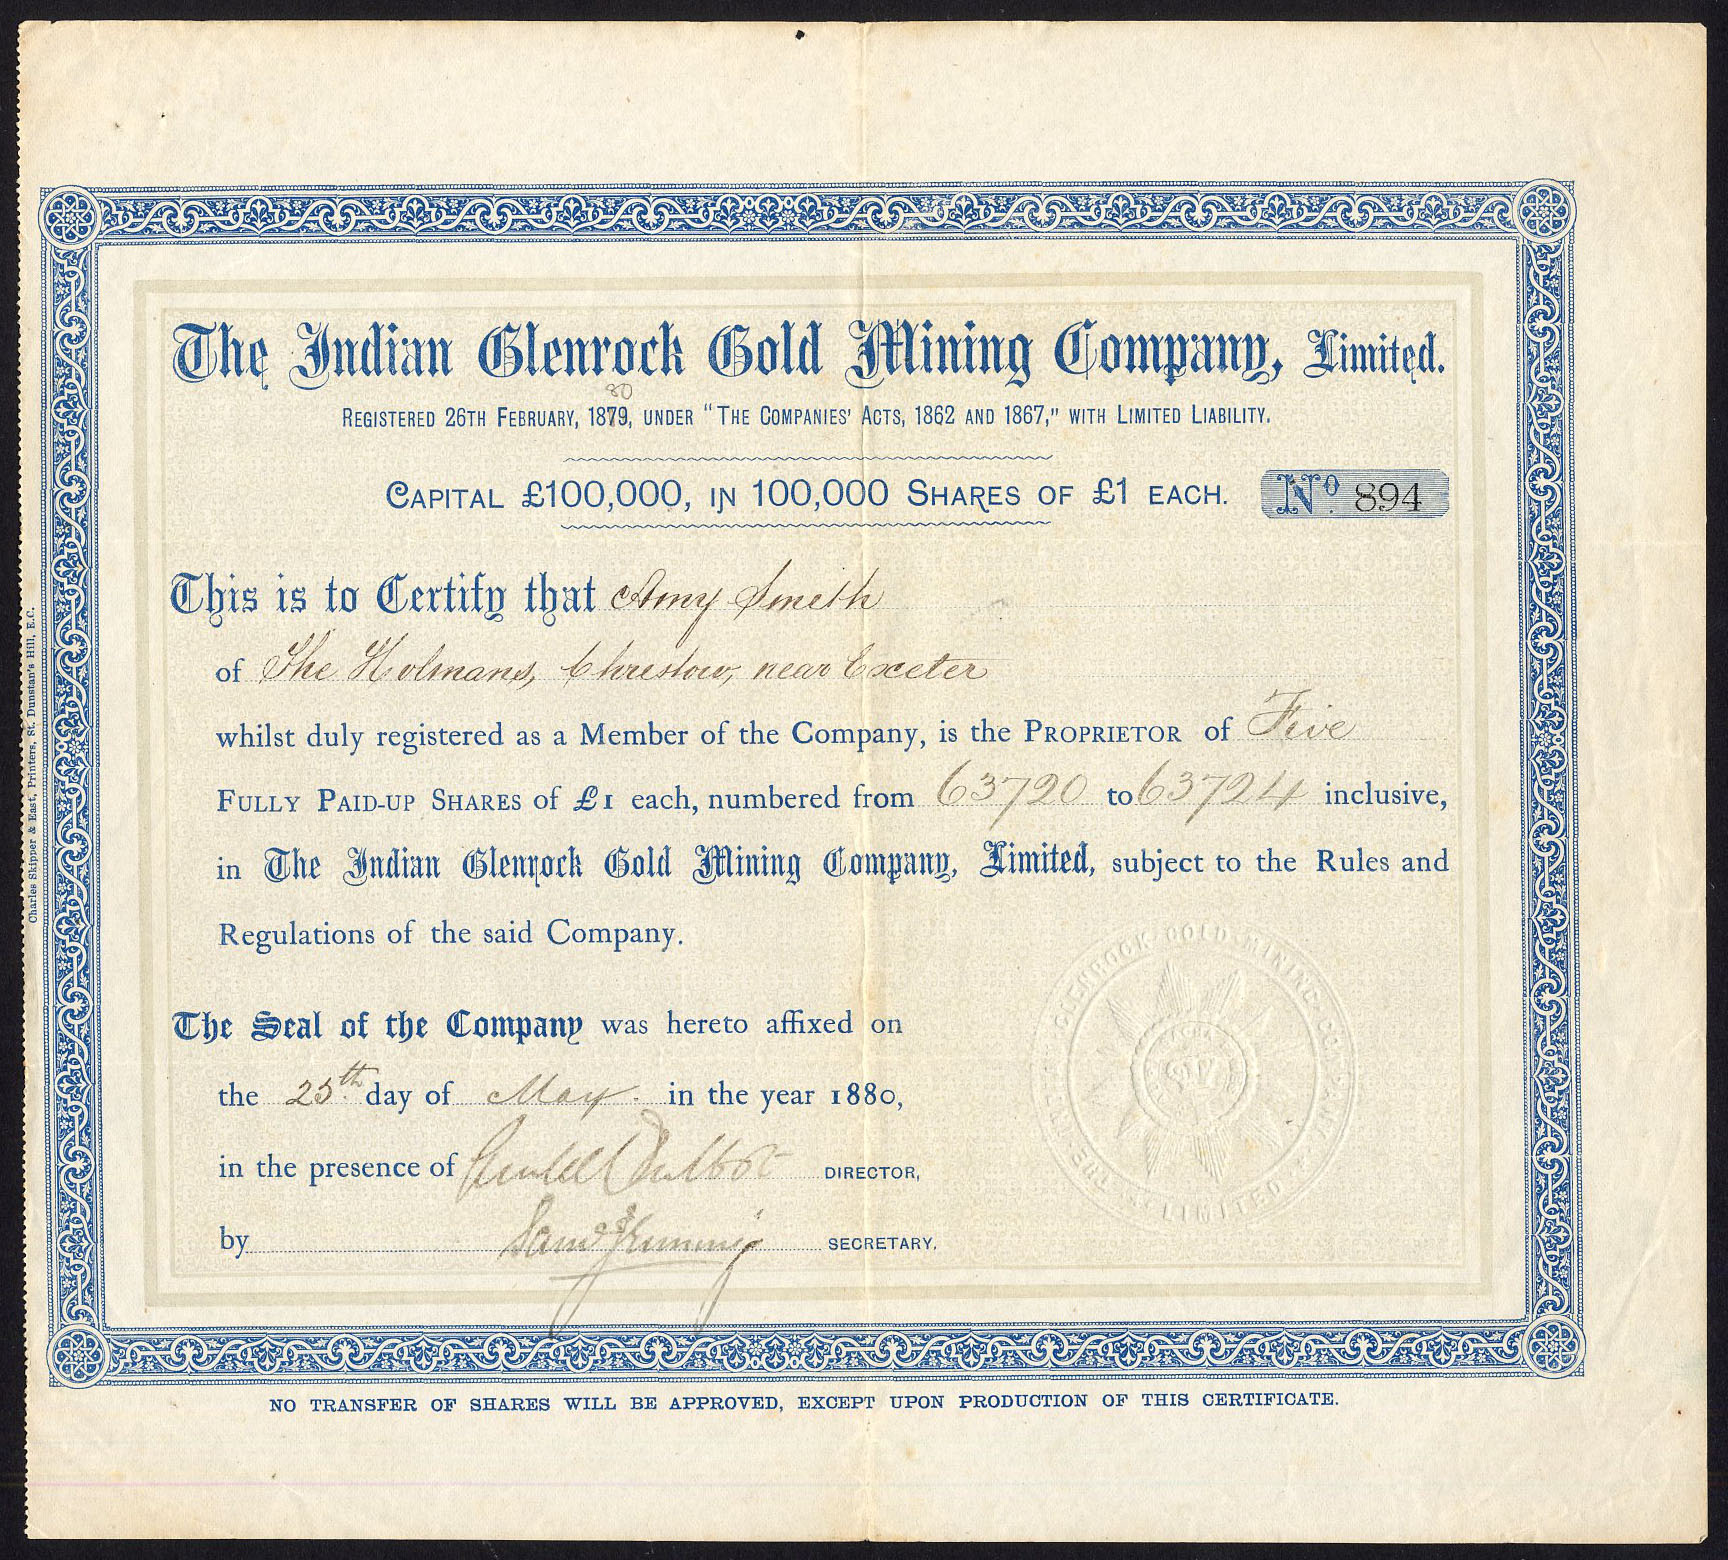 The Indian Glenrock Gold Mining Company, Limited.
80
REGISTERED 26TH FEBRUARY, 1879, UNDER "THE COMPANIES' ACTS, 1862 AND 1867," WITH LIMITED LIABILITY.
CAPITAL £100,000, IN 100,000 SHARES OF £1 EACH.
No. 894
This is to Certify that Amy Smith
of The Holmans, Christow, near Exeter
whilst duly registered as a Member of the Company, is the PROPRIETOR of Five
FULLY PAID-UP SHARES of £1 each, numbered from 63720 to 63724 inclusive,
in The Indian Glenrock Gold Mining Company, Limited, subject to the Rules and
Regulations of the said Company.
The Seal of the Company was hereto affixed on
the 25th day of May. in the year 1880,
in the presence of DIRECTOR,
by SECRETARY.
THE INDIAN GLENROCK GOLD MINING COMPANY LIMITED
NO TRANSFER OF SHARES WILL BE APPROVED, EXCEPT UPON PRODUCTION OF THIS CERTIFICATE.
Charles Skipper & East, Printers, St. Dunstan's Hill, E.C.